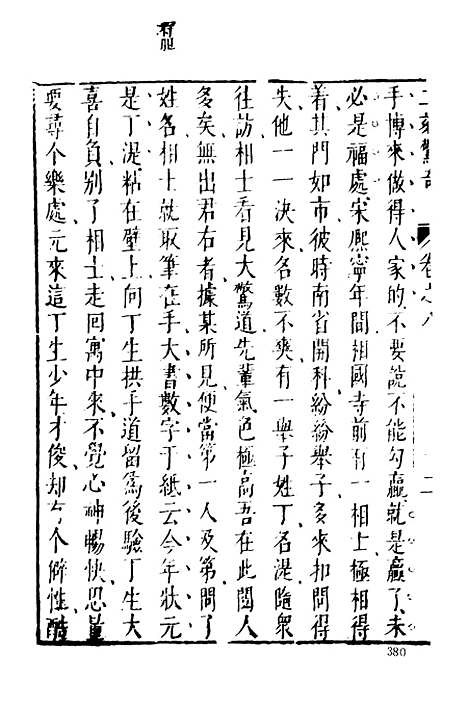 有胆
二刻驚奇 卷之八 二
手博來做得人家的不要說不能勾贏就是贏了未
必是福處宋熈寧年間相國寺前有一相士極相得
着其門如市彼時南省開科紛紛舉子多來扣問得
失他一一決來名數不爽有一舉子姓丁名湜隨衆
往訪相士看見大驚道先輩氣色極高吾在此閱人
多矣無出君右者據某所見便當第一人及第問了
姓名相士就取筆在手大書數字于紙云今年狀元
是丁湜粘在壁上向丁生拱手道留為後驗丁生大
喜自負别了相士走回寓中來不覺心神暢快思量
要尋个樂處元來這丁生少年才俊却有个僻性酷
380